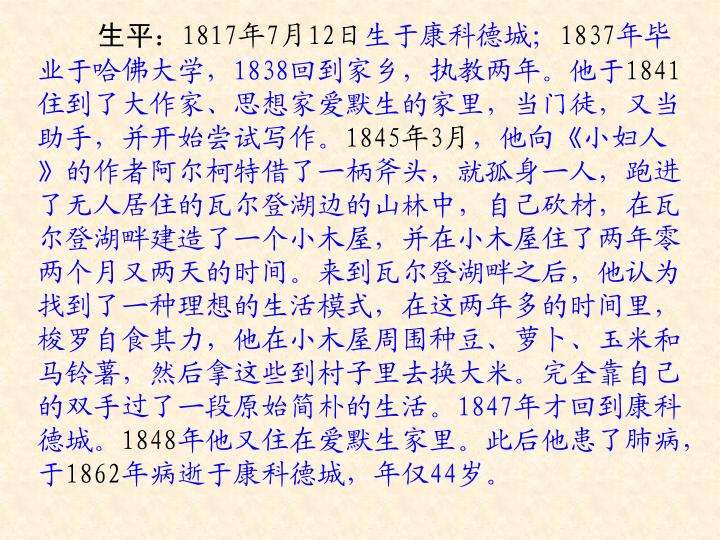 生平：1817年7月12日生于康科德城；1837年毕
业于哈佛大学，1838回到家乡，执教两年。他于1841
住到了大作家、思想家爱默生的家里，当门徒，又当
助手，并开始尝试写作。1845年3月，他向《小妇人
》的作者阿尔柯特借了一柄斧头，就孤身一人，跑进
了无人居住的瓦尔登湖边的山林中，自己砍材，在瓦
尔登湖畔建造了一个小木屋，并在小木屋住了两年零
两个月又两天的时间。来到瓦尔登湖畔之后，他认为
找到了一种理想的生活模式，在这两年多的时间里，
梭罗自食其力，他在小木屋周围种豆、萝卜、玉米和
马铃薯，然后拿这些到村子里去换大米。完全靠自己
的双手过了一段原始简朴的生活。1847年才回到康科
德城。1848年他又住在爱默生家里。此后他患了肺病，
于1862年病逝于康科德城，年仅44岁。